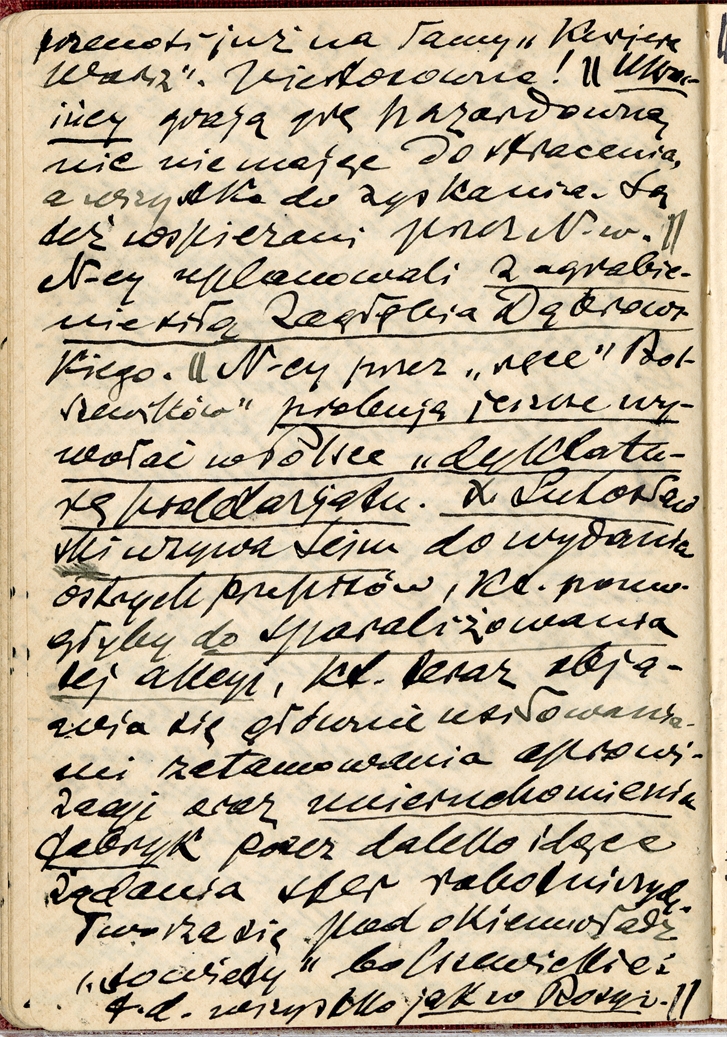 przenosi już na łamy „Kurjera
Warsz". Niestosowne! || Ukra-
ińcy grają grę hazardowną
nic nie mając do stracenia,
a wszystko do zyskania. Są
też wspierani przez N-w. ||
N-cy uplanowali zagrabie-
nie siłą Zagłębia Dąbrows-
kiego. || N-cy przez „ręce" Bol-
szewików" próbują jeszcze wy-
wołać w Polsce „dyktatu-
rę proletarjatu. X Lutosław
ski wzywa Sejm do wydania
ostrych przepisów, kt. pomo-
głyby do sparaliżowania
tej akcji, kt. teraz obja-
wia się głównie usiłowania-
mi zatamowania aprowi-
zacji oraz unieruchomienia
fabryk przez daleko idące
żądania sfer robotniczych.
Tworzą się pod okiem władz
„sowiety" bolszewickie i
t.d. wszystko jak w Rosyi. ||